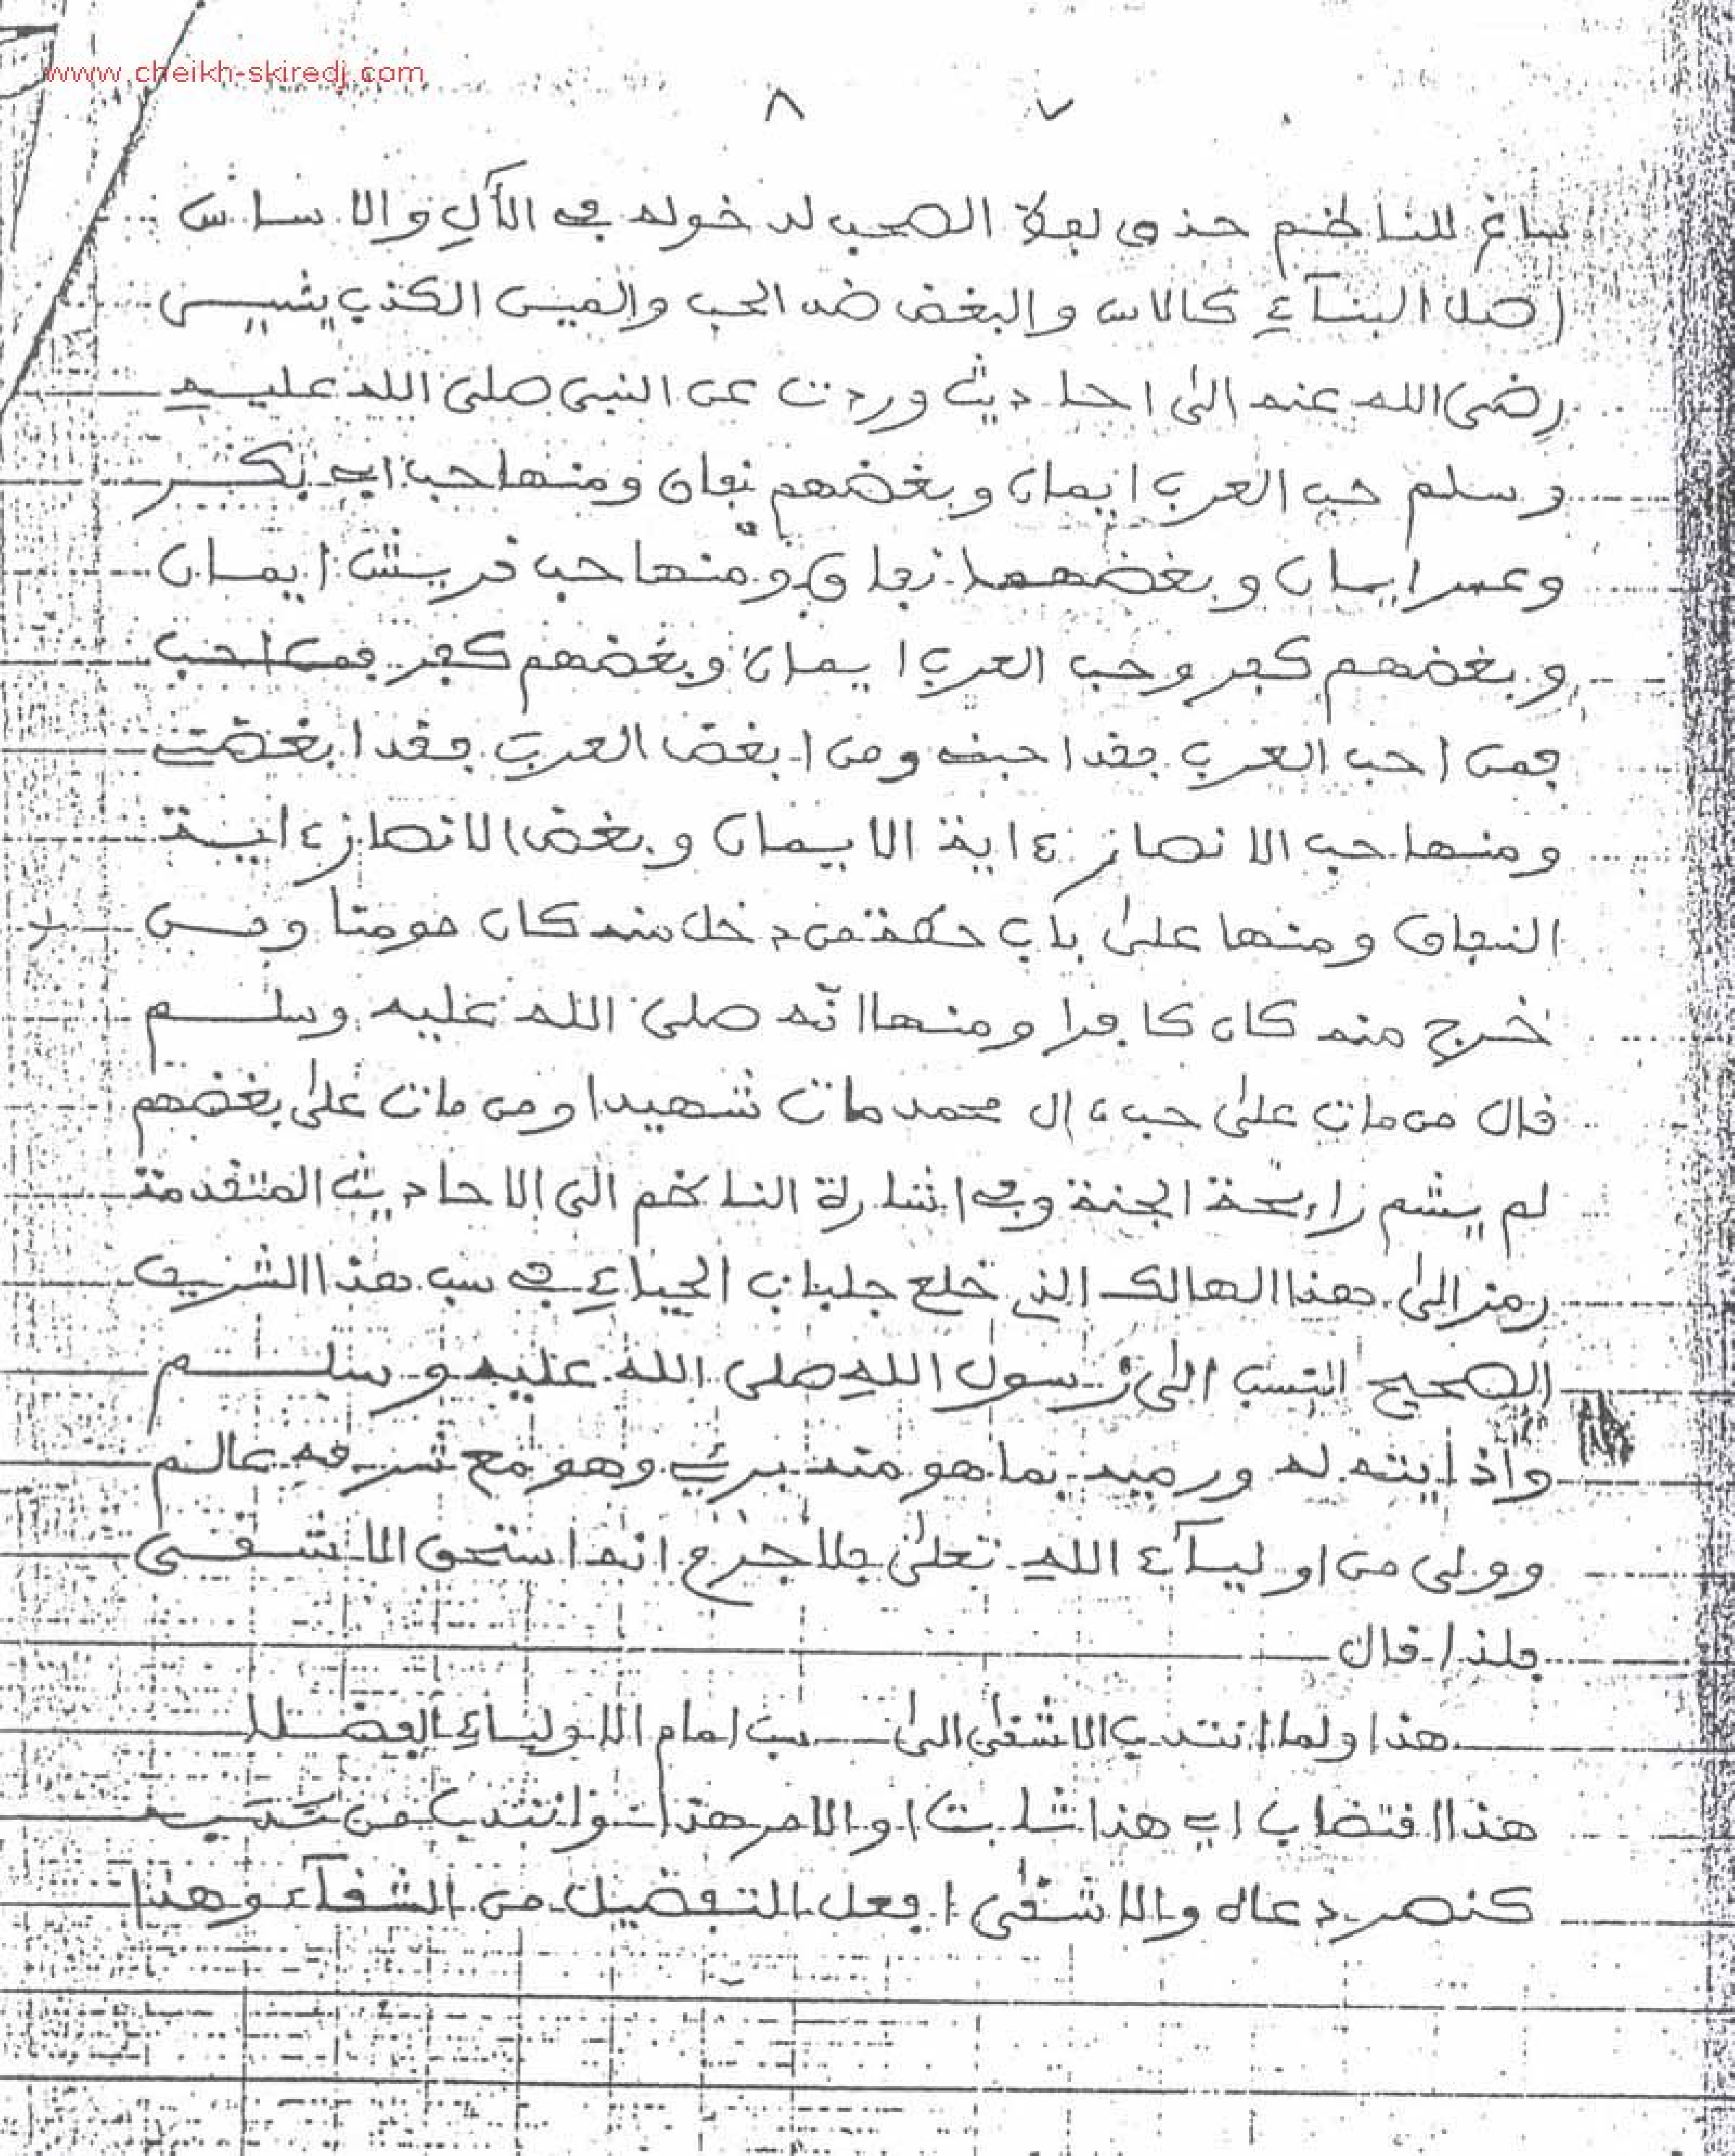 www.cheikh-skiredj.com
٨ ٧
ساغ للناظم حذف لفظة الصحب لدخوله في الآل والاساس
اصل البناء كالاس والبغض ضد الحب والمين الكذب يشيـر
رضى الله عنه الى احاديث وردت عن النبي صلى الله عليه
وسلم حب العرب ايمان وبغضهم نفاق ومنها حب ابي بكر
وعمر ايمان وبغضهما نفاق ومنها حب قريش ايمان
وبغضهم كفر وحب العرب ايمان وبغضهم كفر فمن احب
فمن احب العرب فقد احبني ومن ابغض العرب فقد ابغضني
ومنها حب الانصار ءاية الايمان وبغض الانصار ءاية
النفاق ومنها على باب حطة من دخل منه كان مومنا ومن
خرج منه كان كافرا ومنها انّه صلى الله عليه وسلم
قال من مات على حب ءال محمد مات شهيدا ومن مات على بغضهم
لم يشم راءحة الجنة وفي اشارة الناظم الى الاحاديث المتقدمة
رمز الى هذا الهالك الذي خلع جلباب الحياء في سب هذا الشريف
الصحيح النسب الى رسول الله صلى الله عليه وسلم
واذايته له ورميه بما هو منه بريء وهو مع شرفه عالم
وولى من اولياء الله تعلى فلا جرم انه استحق الاشقى
فلذا قال
هذا ولما انتدب الاشقى الى سب امام الاولياء الفضلا
هذا اقتضاب اي هذا ثابت او الامر هذا وانتدب من
كنصر دعاه والاشقى افعل التفضيل من الشقاء وهذا